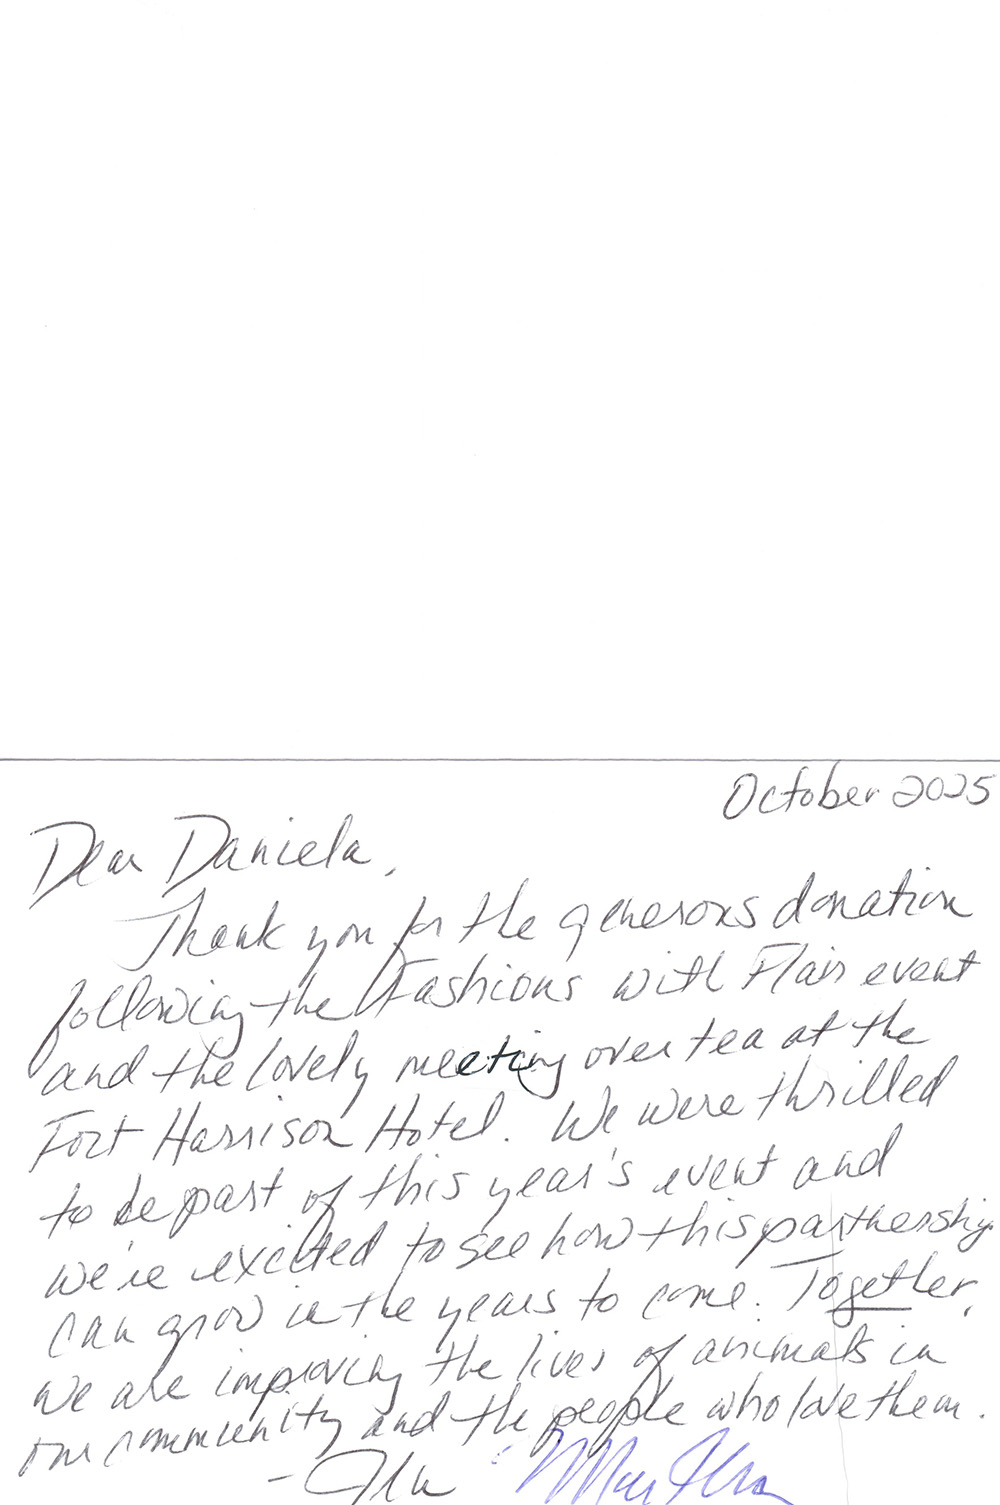 October 2025
Dear Daniela,
Thank you for the generous donation
following the Fashions with Flair event
and the lovely meeting over tea at the
Fort Harrison Hotel. We were thrilled
to be part of this year's event and
we're excited to see how this partnership
can grow in the years to come. Together,
we are improving the lives of animals in
our community and the people who love them.